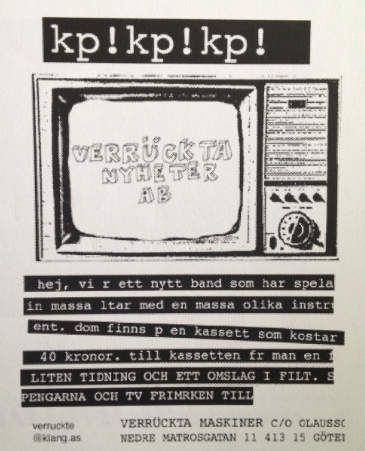 kp!kp!kp!
VERRÜCKTA
NYHETER
AB
hej, vi r ett nytt band som har spela
in massa ltar med en massa olika instru
ent. dom finns p en kassett som kostar
40 kronor. till kassetten fr man en f
LITEN TIDNING OCH ETT OMSLAG I FILT. S
PENGARNA OCH TV FRIMRKEN TILL
verruckte
@klang.as
VERRÜCKTA MASKINER C/O OLAUSSO
NEDRE MATROSGATAN 11 413 15 GÖTE